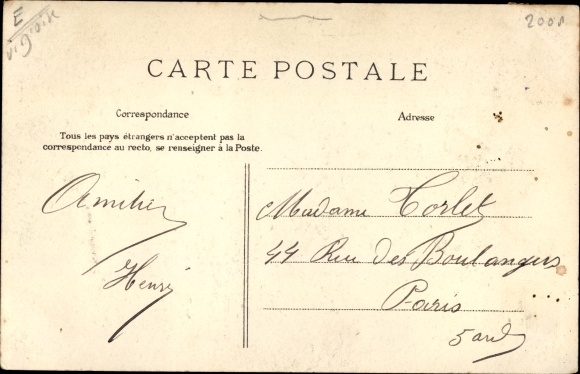 E
200
CARTE POSTALE
Correspondance
Adresse
Tous les pays étrangers n'acceptent pas la
correspondance au recto, se renseigner à la Poste.
Amitiés
Henri
Madame Torlet
44 Rue des Boulangers
Paris
5 ard